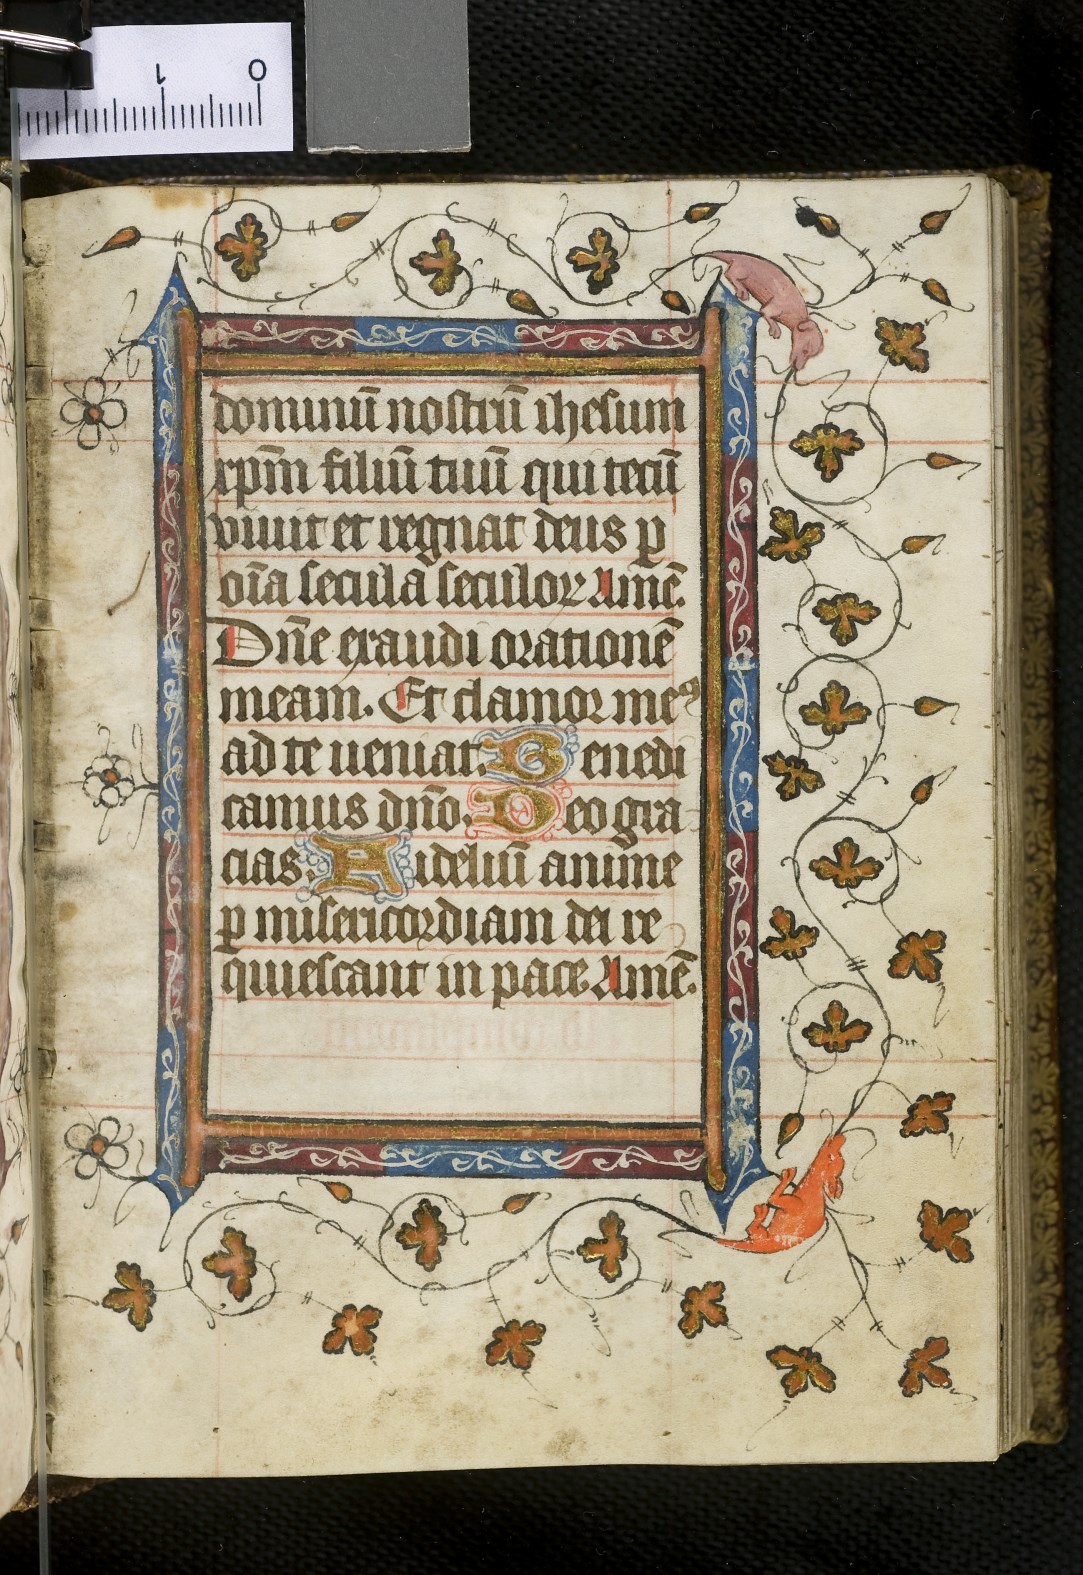 1 0
dominū nostrū ihesum
xp̄m filiū tuū qui tecū
viuit et regnat deus ꝑ
oīa secula seculoꝝ Amē.
Dn̄e exaudi orationē
meam. Et clamor meꝰ
ad te ueniat. Benedi
camus dn̄o. Deo gra
cias. Fideliū anime
ꝑ misericordiam dei re
quiescant in pace. Amē.